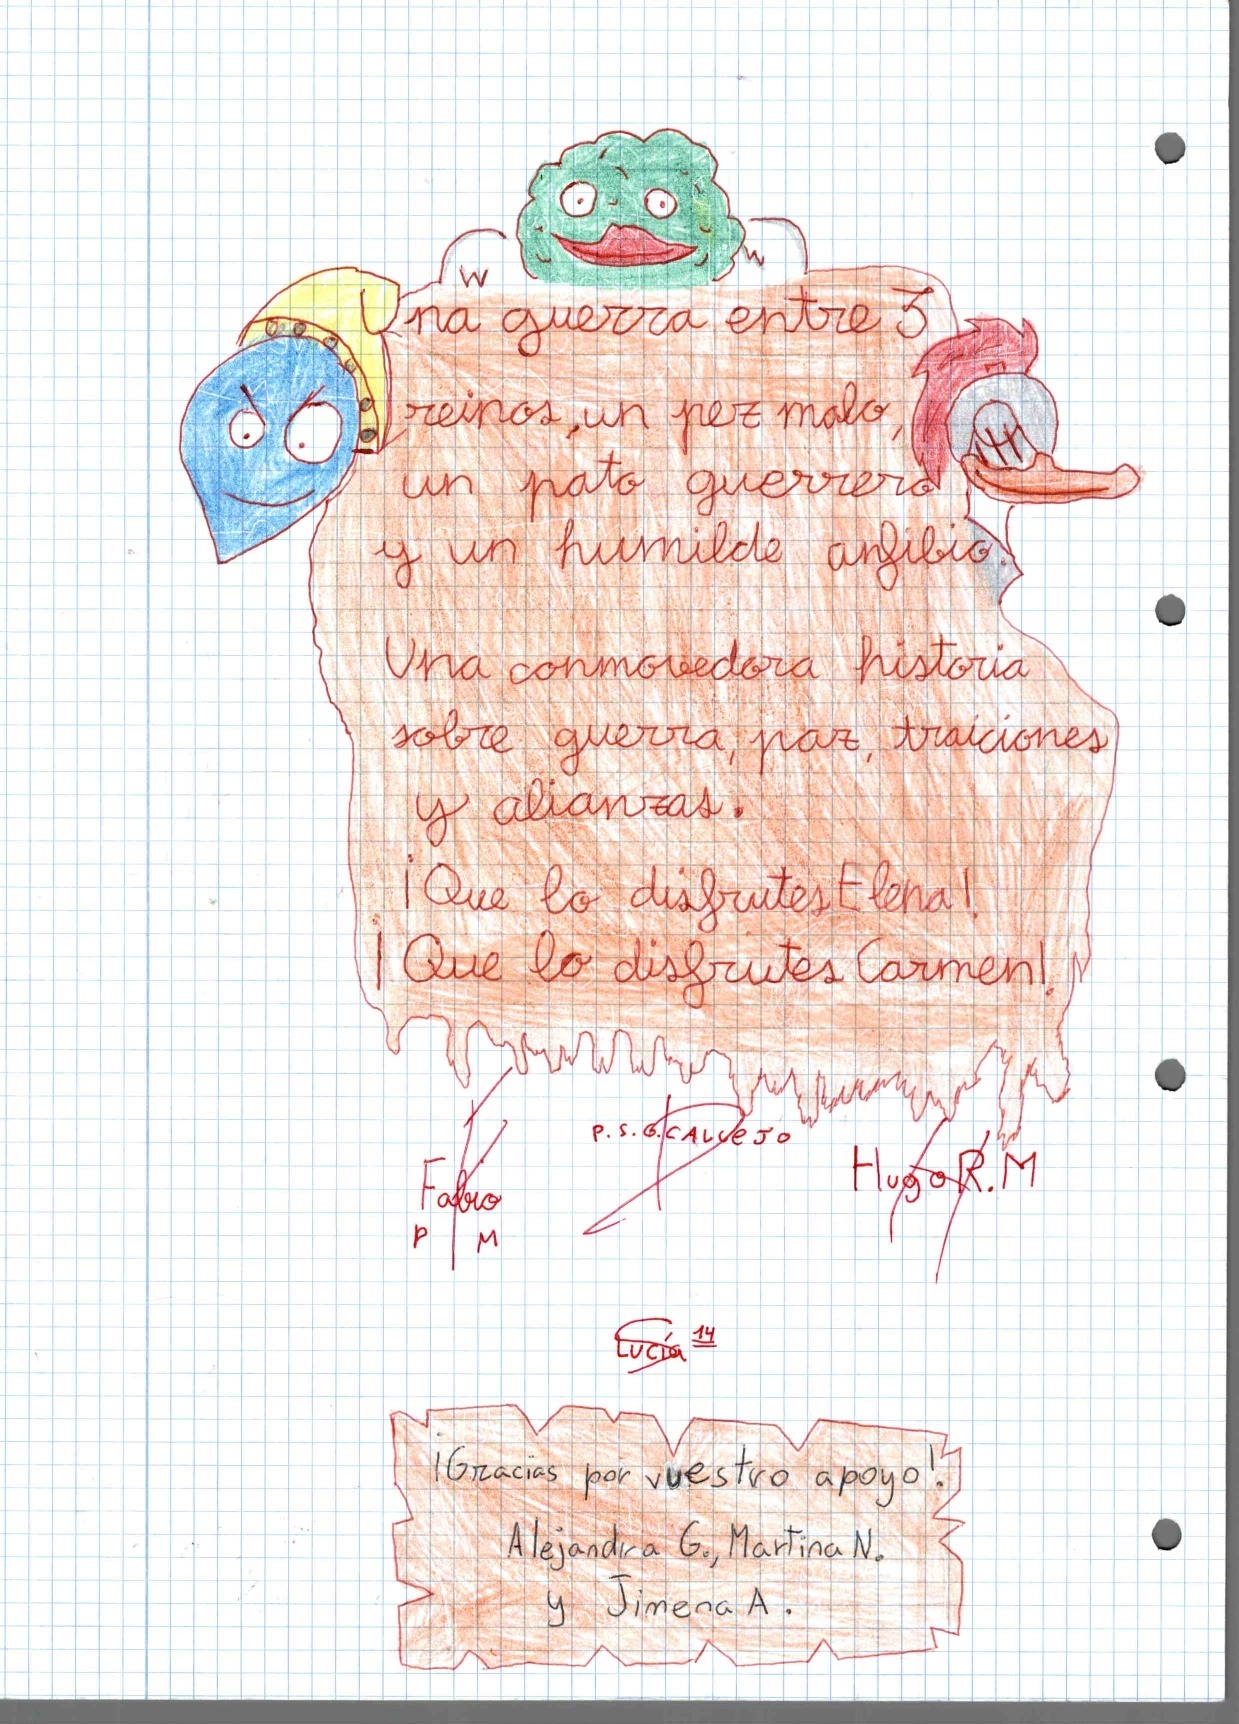 W
W
Una guerra entre 3
reinos, un pez malo,
un pato guerrero
y un humilde anfibio.
Una conmovedora historia
sobre guerra, paz, traiciones
y alianzas.
¡Que lo disfrutes Elena!
¡Que lo disfrutes Carmen!
P.S.G.CALLEJO
Fabio
P M
Hugo R.M
Lucía 14
¡Gracias por vuestro apoyo!
Alejandra G., Martina N.
y Jimena A.